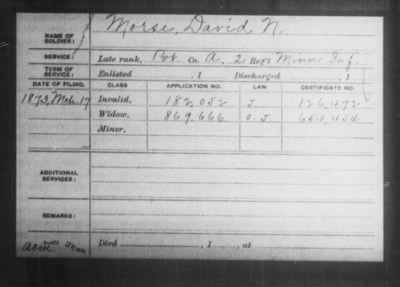 Morse, David N.
NAME OF SOLDIER:
SERVICE: Late rank, Pvt Co. A, 2 Reg't Minn Inf.
TERM OF SERVICE: Enlisted , 1 Discharged , 1
DATE OF FILING. CLASS APPLICATION NO. LAW. CERTIFICATE NO.
1873, Mch 17 Invalid, 182,052 126,472
Widow, 869,666
Minor,
ADDITIONAL SERVICES:
REMARKS:
Died , 1 , at